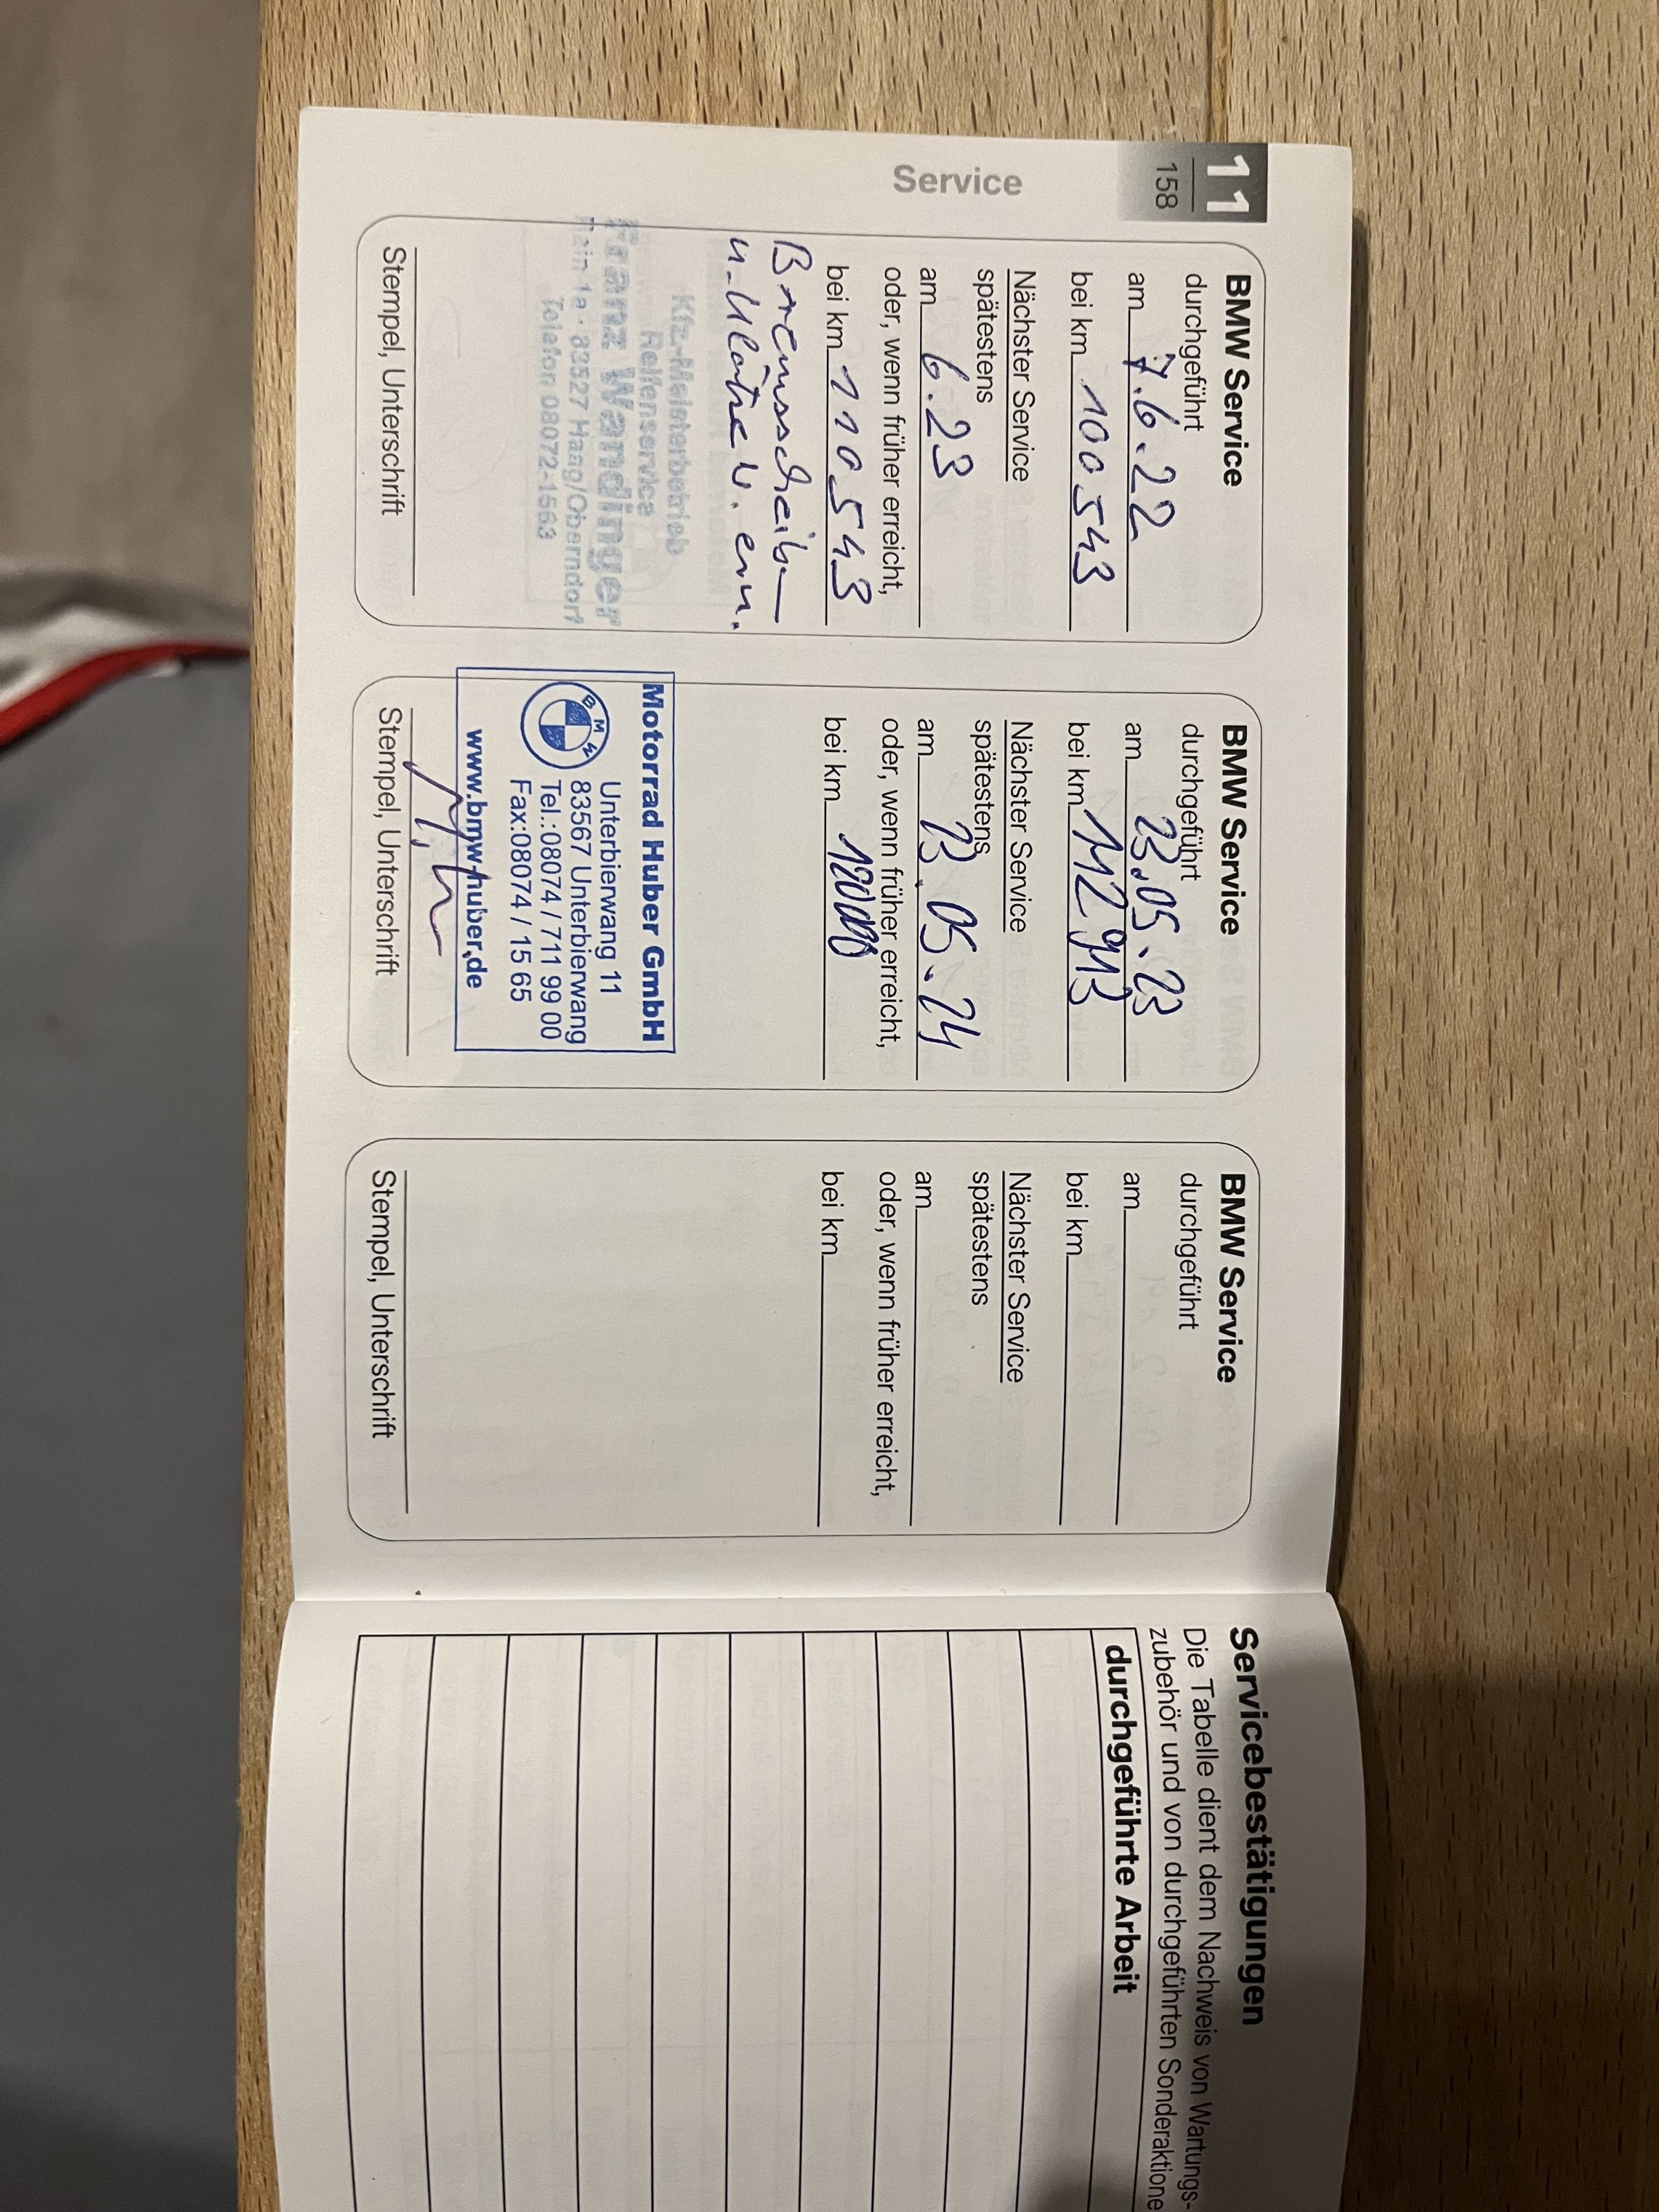 11
158
Service
BMW Service
durchgeführt
am 7.6.22
bei km 100543
Nächster Service
spätestens
am 6.23
oder, wenn früher erreicht,
bei km 110543
Bremsscheiben
u. Klötze v. ern.
Kfz-Meisterbetrieb
Reifenservice
Franz Wandinger
Rain 1a · 83527 Haag/Oberndorf
Telefon 08072-1563
Stempel, Unterschrift
BMW Service
durchgeführt
am 23.05.23
bei km 112913
Nächster Service
spätestens
am 23.05.24
oder, wenn früher erreicht,
bei km
Motorrad Huber GmbH
Unterbierwang 11
83567 Unterbierwang
Tel.:08074 / 711 99 00
Fax:08074 / 15 65
BMW
www.bmw-huber.de
Stempel, Unterschrift
BMW Service
durchgeführt
am
bei km
Nächster Service
spätestens
am
oder, wenn früher erreicht,
bei km
Stempel, Unterschrift
Servicebestätigungen
Die Tabelle dient dem Nachweis von Wartungs-
zubehör und von durchgeführten Sonderaktione
durchgeführte Arbeit